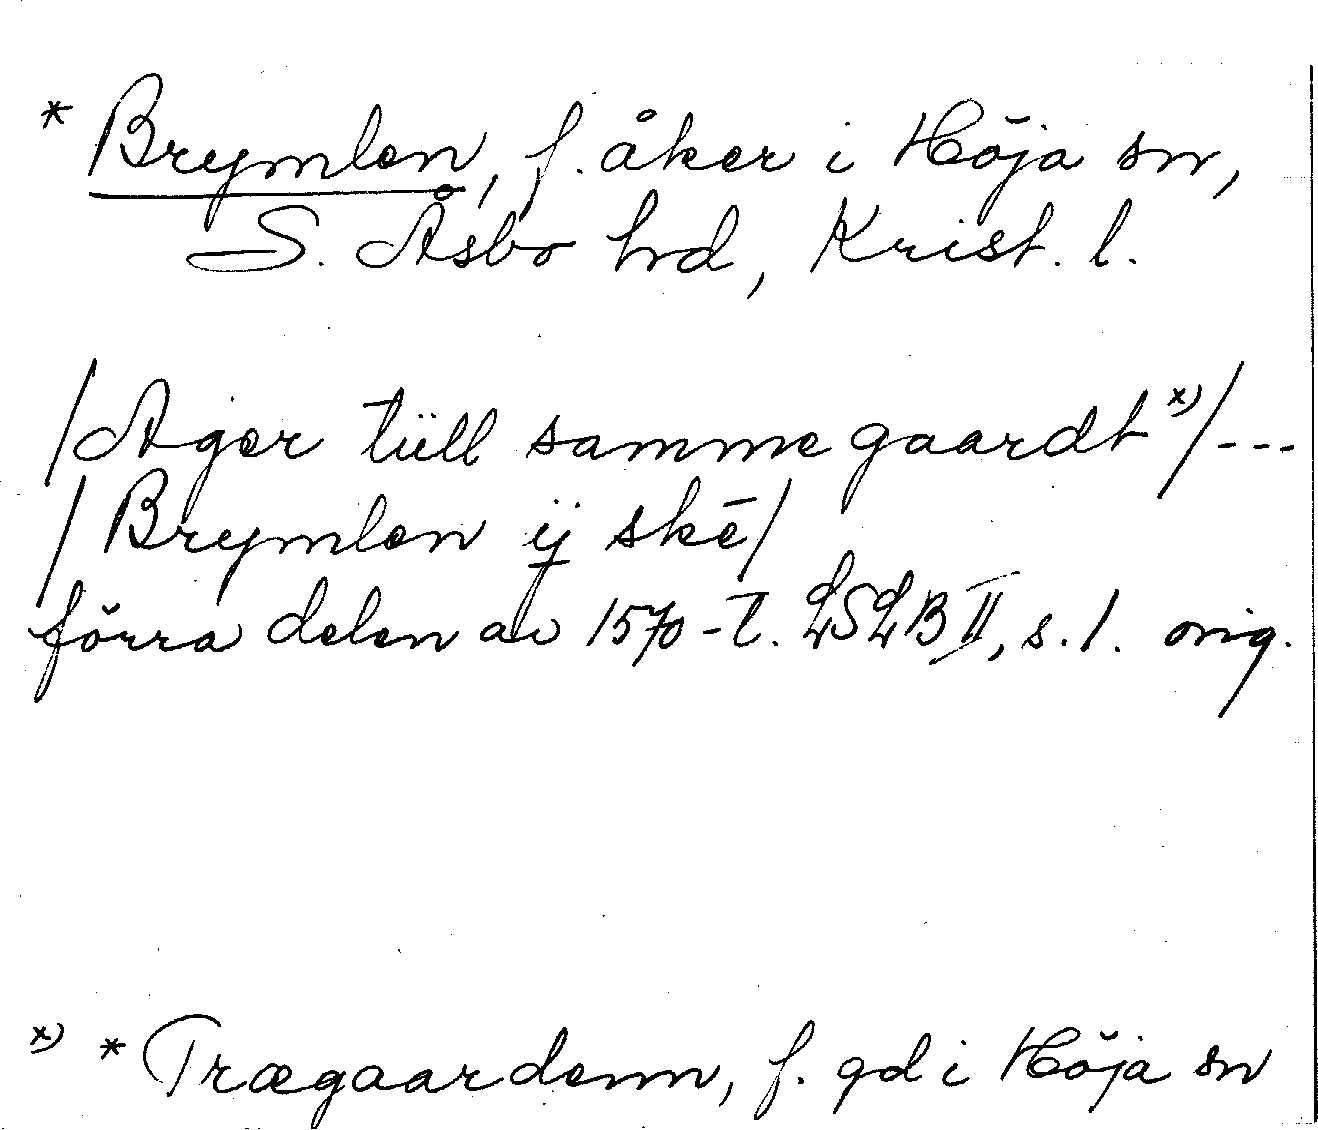 * Brymlen, f. åker i Höja sn,
S. Åsbo hd, Krist. l.
/Ager tüll samme gaardt x)/---
/Brymlen ij skē/
förra delen av 1570-t. LSLB II, s. 1. orig.
x) * Trægaardenn, f. gd i Höja sn